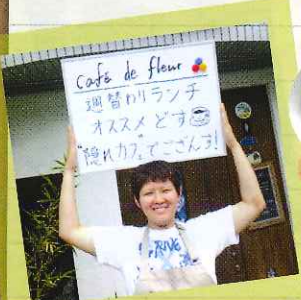 Café de fleur
週替わりランチ
オススメどす
"隠れカフェ"でござんす!